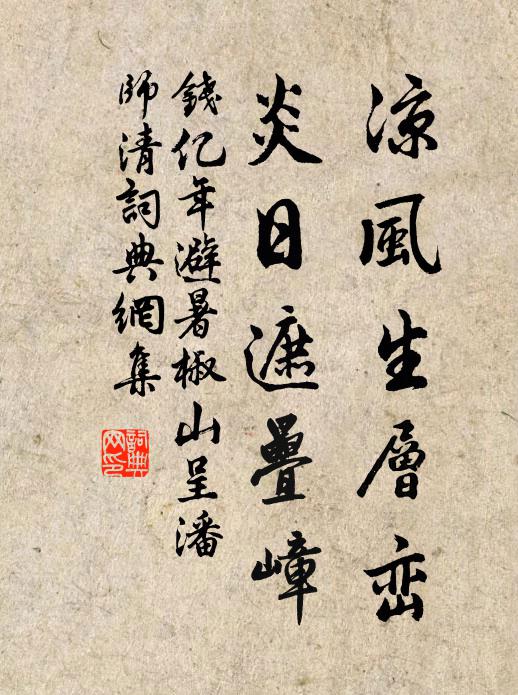 凉風生層峦
炎日遮疊嶂
錢亿年避暑椒山呈潘
師清詞典網集
詞典
网印